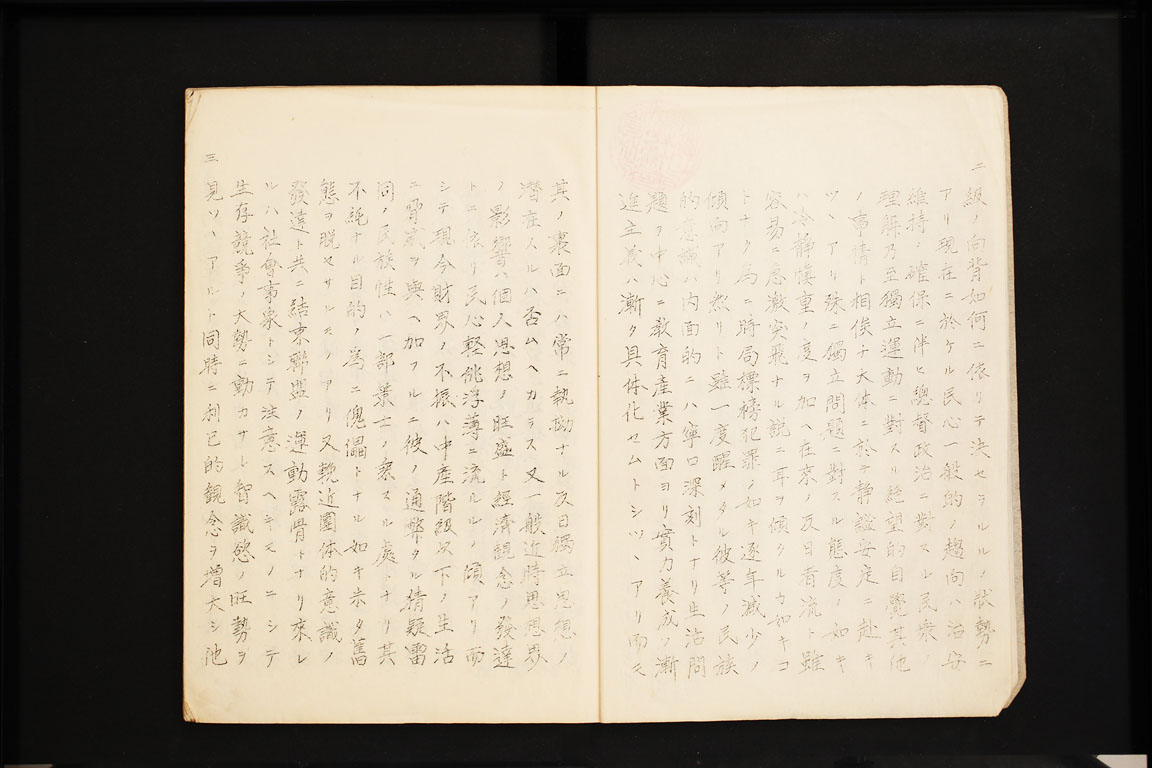 二
級ノ向背如何ニ依リテ決セラルルノ狀勢ニ
アリ現在ニ於ケル民心一般的ノ趨向ハ治安
維持ノ確保ニ伴ヒ總督政治ニ對スル民衆ノ
理解乃至獨立運動ニ對スル絶望的自覺其他
ノ事情ト相俟チ大体ニ於テ静謐安定ニ赴キ
ツヽアリ殊ニ獨立問題ニ對スル態度ノ如キ
ハ冷静愼重ノ度ヲ加ヘ在来ノ反日者流ト雖
容易ニ急激突飛ナル説ニ耳ヲ傾クルカ如キコ
トナク為ニ時局標榜犯罪ノ如キ逐年減少ノ
傾向アリ然リト雖一度醒メタル彼等ノ民族
的意識ハ内面的ニハ寧ロ深刻トナリ生活問
題ヲ中心ニ教育産業方面ヨリ實力養成ノ漸
進主義ハ漸ク具体化セムトシツヽアリ而モ
其ノ裏面ニハ常ニ執拗ナル反日獨立思想ノ
潜在スルハ否ムヘカラス又一般近時思想界
ノ影響ハ個人思想ノ旺盛ト經濟観念ノ發達
トニ依リ民心輕佻浮薄ニ流ルルノ傾アリ而
シテ現今財界ノ不振ハ中産階級以下ノ生活
ニ脅威ヲ與ヘ加フルニ彼ノ通弊タル猜疑雷
同ノ民族性ハ一部業士ノ乘スル處トナリ其
不純ナル目的ノ爲ニ傀儡トナル如キ未タ舊
態ヲ脱セサルモノアリ又輓近團体的意識ノ
發達ト共ニ結束聯盟ノ運動露骨トナリ來レ
ルハ社會事象トシテ注意スヘキモノニシテ
生存競爭ノ大勢ニ動カサレ智識慾ノ旺勢ヲ
三
見ツヽアルト同時ニ利己的観念ヲ増大シ他